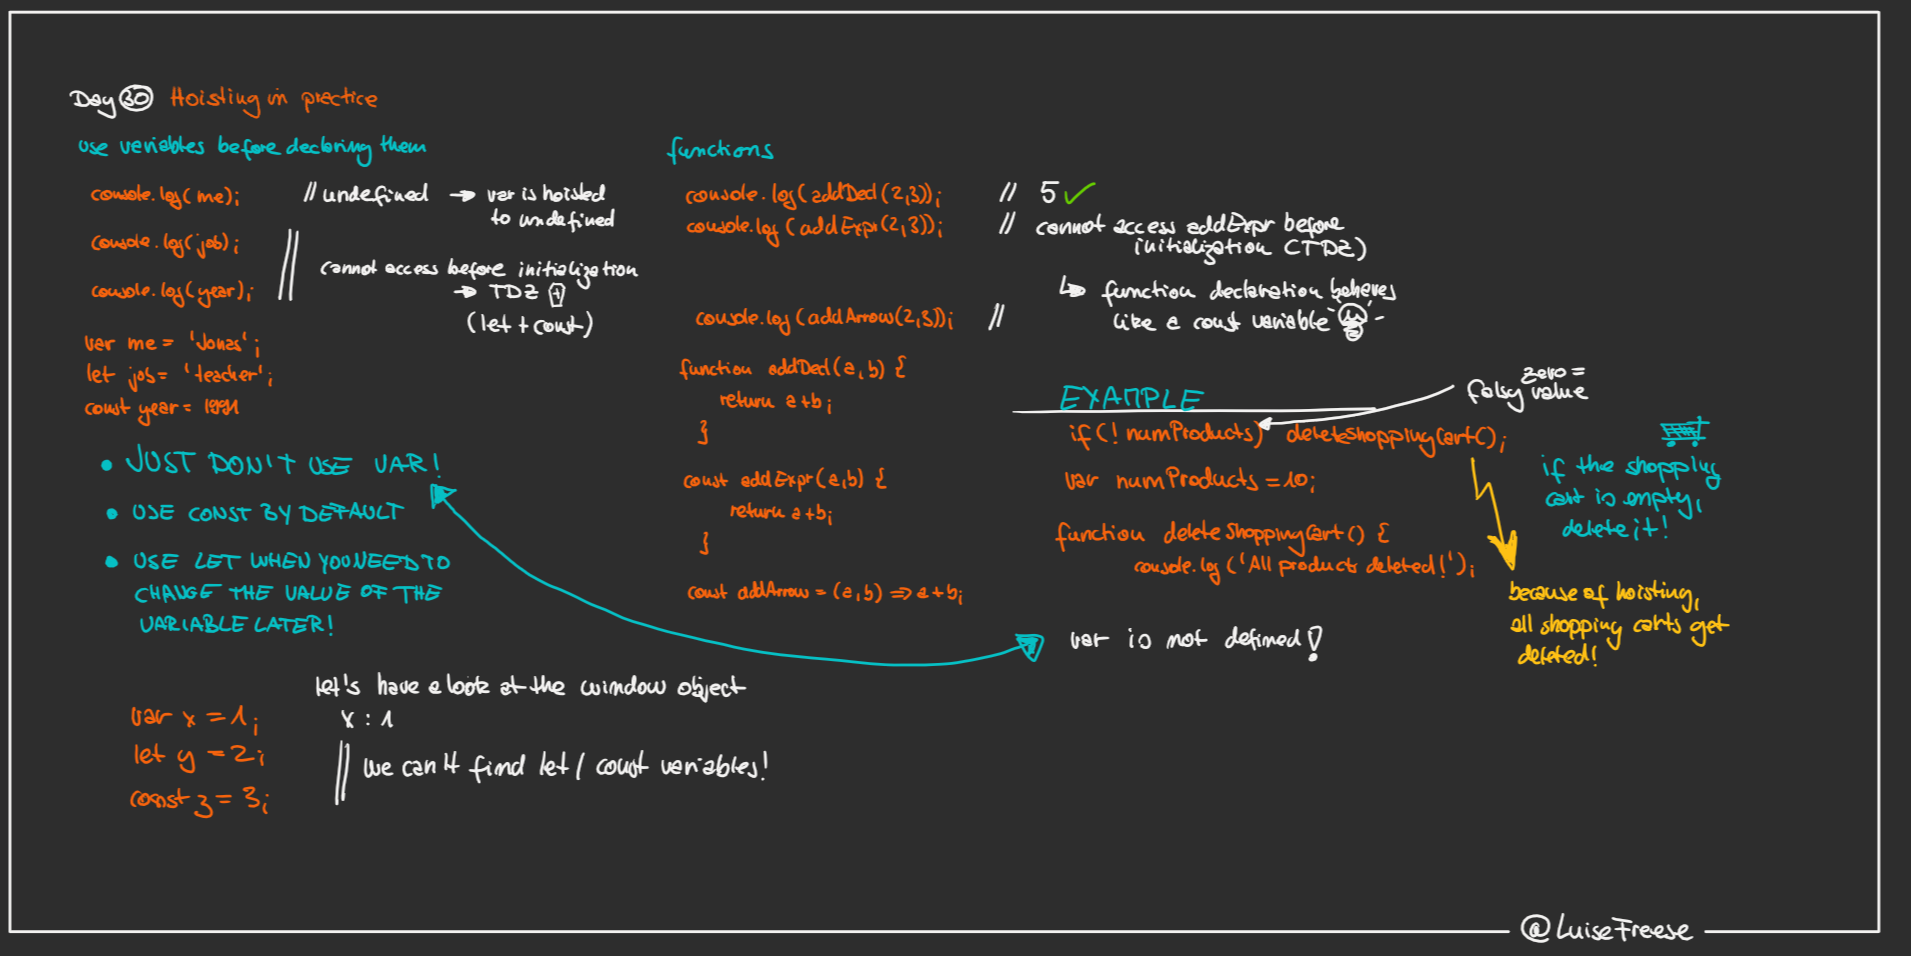 Day 30 Hoisting in practice
use variables before declaring them
console.log(me);
// undefined → var is hoisted
to undefined
console.log(job);
console.log(year);
cannot access before initialization
→ TDZ
(let + const)
var me = 'Jonas';
let job = 'teacher';
const year = 1991
• JUST DON'T USE VAR!
• USE CONST BY DEFAULT
• USE LET WHEN YOU NEED TO
CHANGE THE VALUE OF THE
VARIABLE LATER!
var x = 1;
let y = 2;
const z = 3;
let's have a look at the window object
x : 1
we can't find let / const variables!
functions
console.log(addDecl(2,3)); // 5 ✓
console.log(addExpr(2,3)); // cannot access addExpr before
initialization (TDZ)
↳ function declaration behaves
like a const variable
console.log(addArrow(2,3)); //
function addDecl(a,b) {
return a+b;
}
const addExpr(a,b) {
return a+b;
}
const addArrow = (a,b) => a+b;
EXAMPLE
zero =
falsy value
if(!numProducts) deleteShoppingCart();
var numProducts = 10;
function deleteShoppingCart() {
console.log('All products deleted!');
var is not defined!
if the shopping
cart is empty,
delete it!
because of hoisting,
all shopping carts get
deleted!
@LuiseFreese